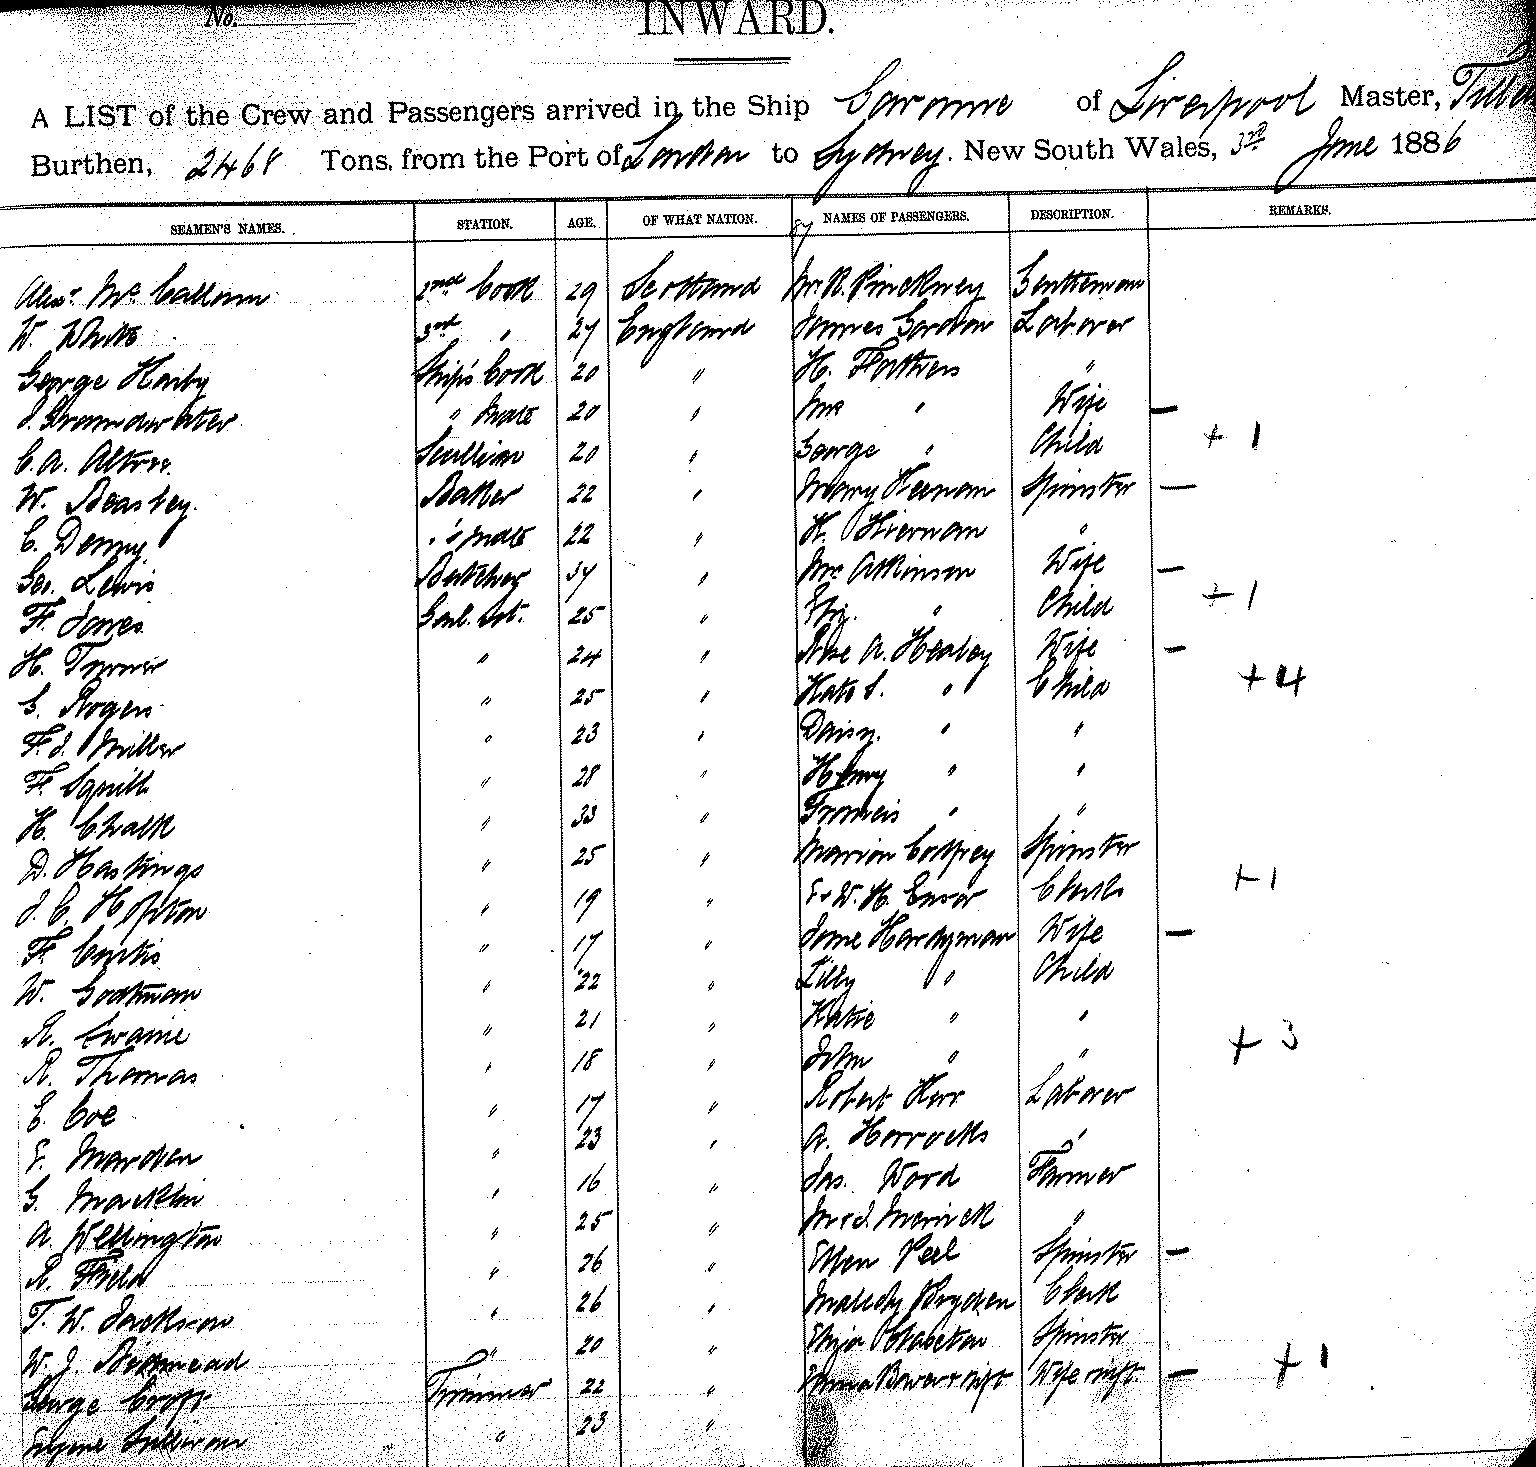 No.
INWARD.
A LIST of the Crew and Passengers arrived in the Ship Garonne of Liverpool Master,
Burthen, 2468 Tons, from the Port of London to Sydney. New South Wales, 3rd June 1886
SEAMEN'S NAMES. STATION. AGE. OF WHAT NATION. NAMES OF PASSENGERS. DESCRIPTION. REMARKS.
Alexr. McCallum 2nd Cook 29 Scotland Mr. R. Pinckney Gentleman
W. White 3rd " 27 England James Gordon Laborer
George Harby Ship's Cook 20 " H. "
J. Groundwater " Mate 20 " Mrs " Wife —
C. A. Scullion 20 " George " Child + 1
W. Beasley. Baker 22 " Mary Keenan Spinster —
C. Denny " 's Mate 22 " K. Kiernan "
Geo. Lewis Butcher 34 " Mrs Atkinson Wife —
F. Jones Genl. 25 " " Child + 1
H. Turner " 24 " Rose A. Healey Wife —
G. Rogers " 25 " Kate S. " Child + 4
F. J. Miller " 23 " Daisy. " "
F. Squibb " 28 " Henry " "
H. Chalk " 33 " Francis " "
D. Hastings " 25 " Marion Godfrey Spinster
J. C. Hopton " 19 " E & W. H. Ensor Clerks + 1
F. Curtis " 17 " Jane Hardyman Wife —
W. Goodman " 22 " Lilly " Child
R. Swaine " 21 " Katie " "
R. Thomas " 18 " John " " + 3
E. Coe " 17 " Robert Kerr Laborer
E. Marden " 23 " A. Horrocks "
G. Macklin " 16 " Jas. Word Farmer
A. Wellington " 25 " M & J. Merrick "
R. Field " 26 " Ellen Peel Spinster —
T. W. Jackson " 26 " Bryden Clerk
W. J. " 20 " Eliza Spinster
George Croft Trimmer 22 " Emma Bower & inft Wife & inft. — + 1
Eugene Sullivan " 23 "